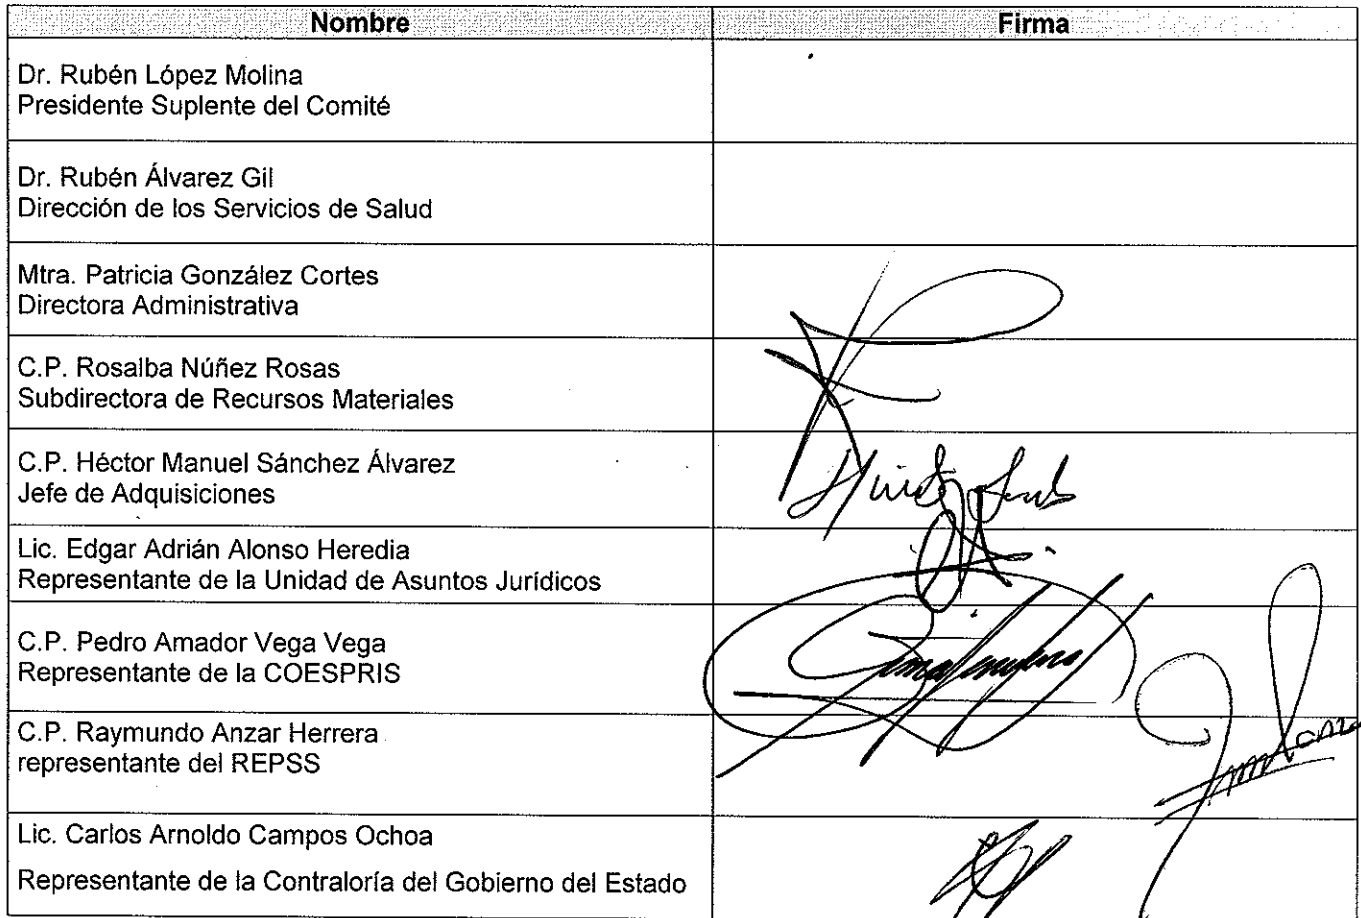 Nombre Firma
Dr. Rubén López Molina
Presidente Suplente del Comité
Dr. Rubén Álvarez Gil
Dirección de los Servicios de Salud
Mtra. Patricia González Cortes
Directora Administrativa
C.P. Rosalba Núñez Rosas
Subdirectora de Recursos Materiales
C.P. Héctor Manuel Sánchez Álvarez
Jefe de Adquisiciones
Lic. Edgar Adrián Alonso Heredia
Representante de la Unidad de Asuntos Jurídicos
C.P. Pedro Amador Vega Vega
Representante de la COESPRIS
C.P. Raymundo Anzar Herrera
representante del REPSS
Lic. Carlos Arnoldo Campos Ochoa
Representante de la Contraloría del Gobierno del Estado